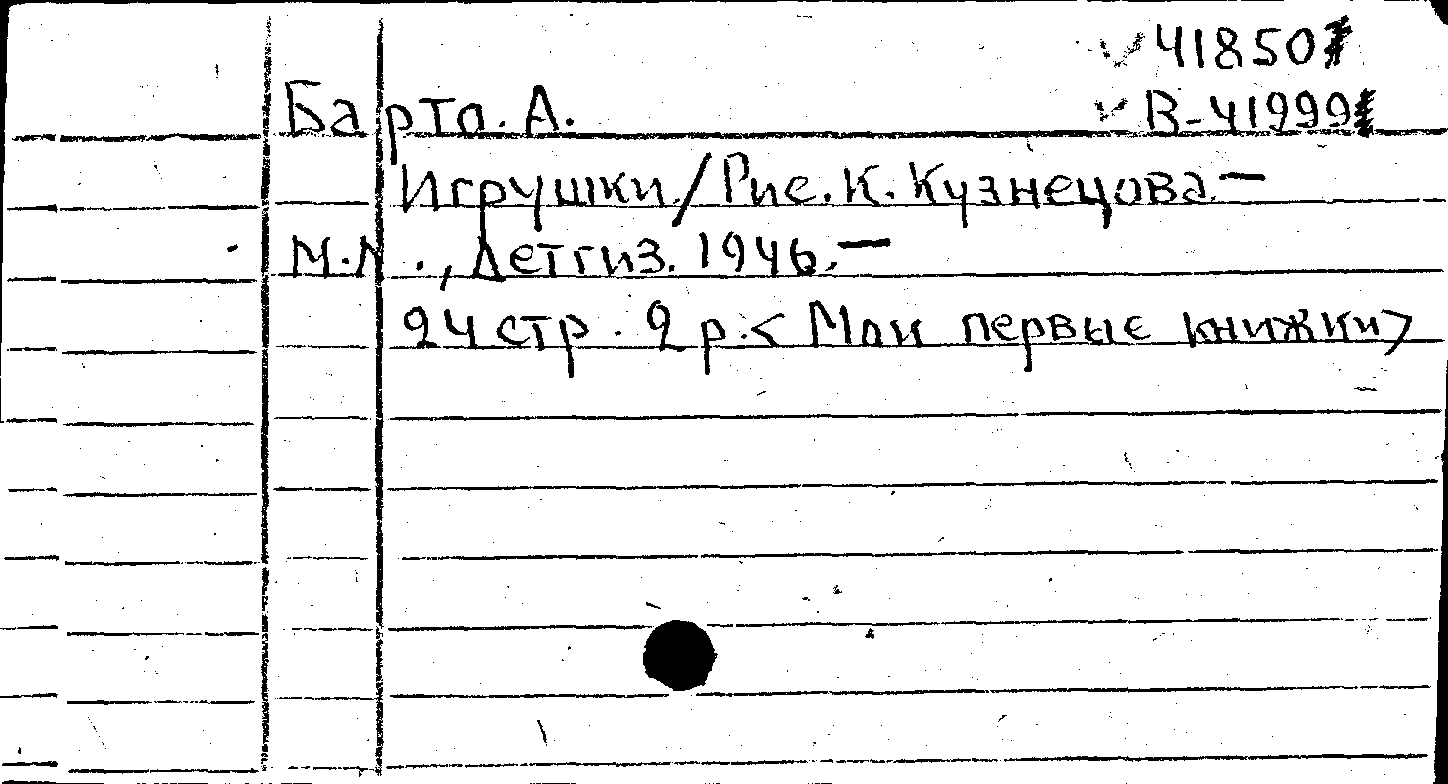 41850
Барто. А.
В-41999
Игрушки/Рис. К. Кузнецова —
М.Л., Детгиз. 1946. —
24 стр. 2 р. < Мои первые книжки>